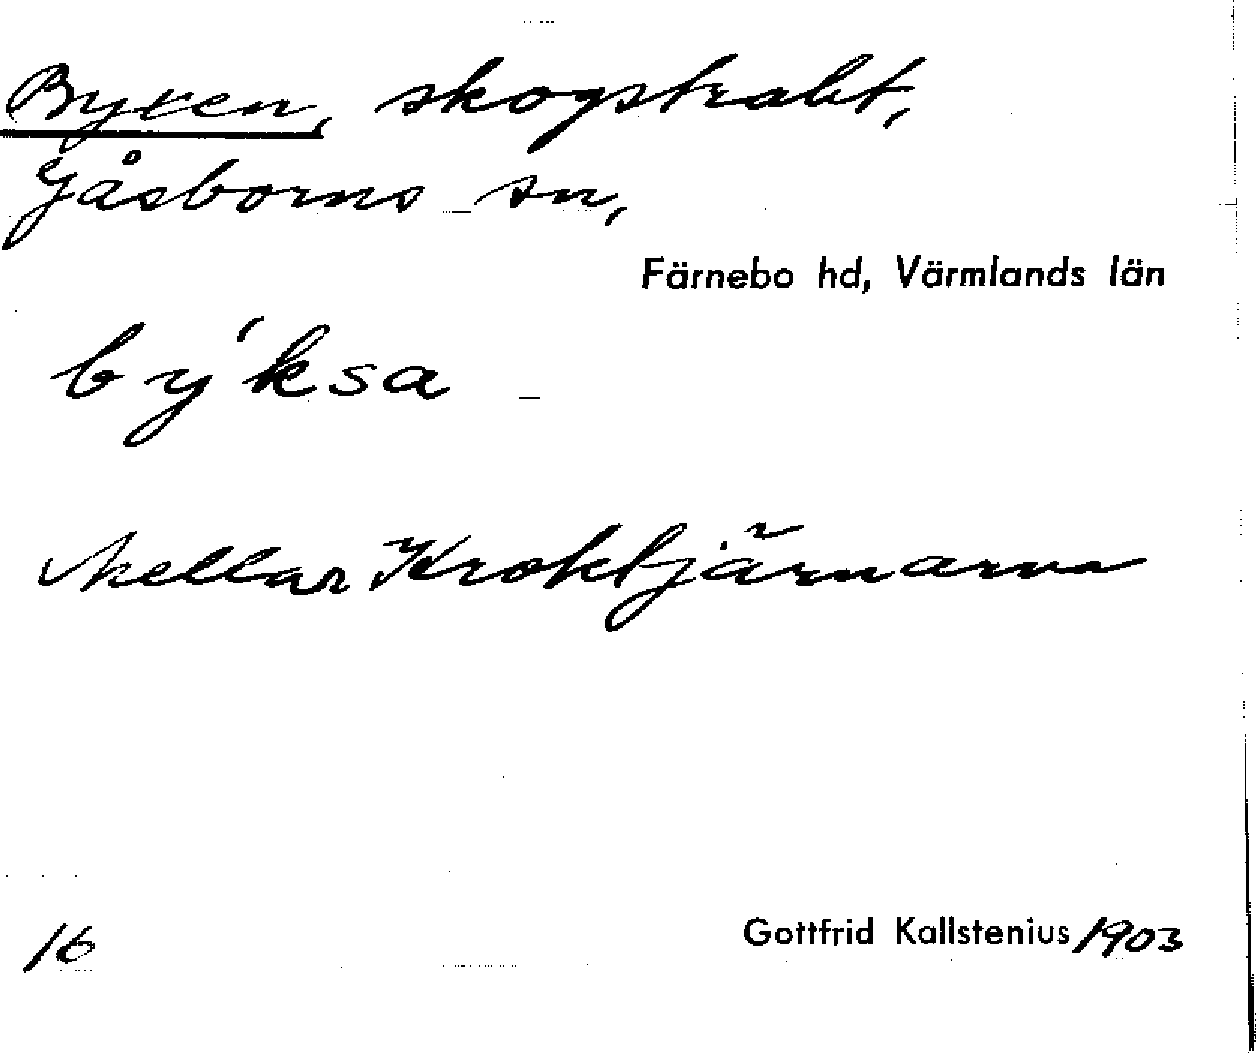 Byxen, skogstrakt,
Gåsborns sn,
Färnebo hd, Värmlands län
bý́ksa
Mellan Kroktjärnarna
16
Gottfrid Kallstenius 1903